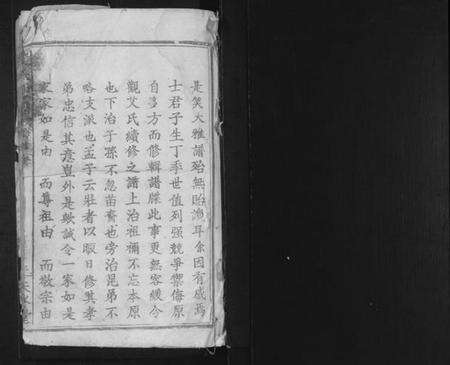 是笑大雅譜殆無貽漁耳余因有感焉
士君子生丁季世值列强競爭禦侮原
自多方而修輯譜牒此事更無容緩今
觀艾氏續修之譜上治祖禰不忘本原
也下治子孫不忽苗裔也旁治昆弟不
略支派也孟子云壯者以暇日修其孝
弟忠信其意豈外是歟誠令一家如是
家家如是由 而尊祖由 而敬宗由